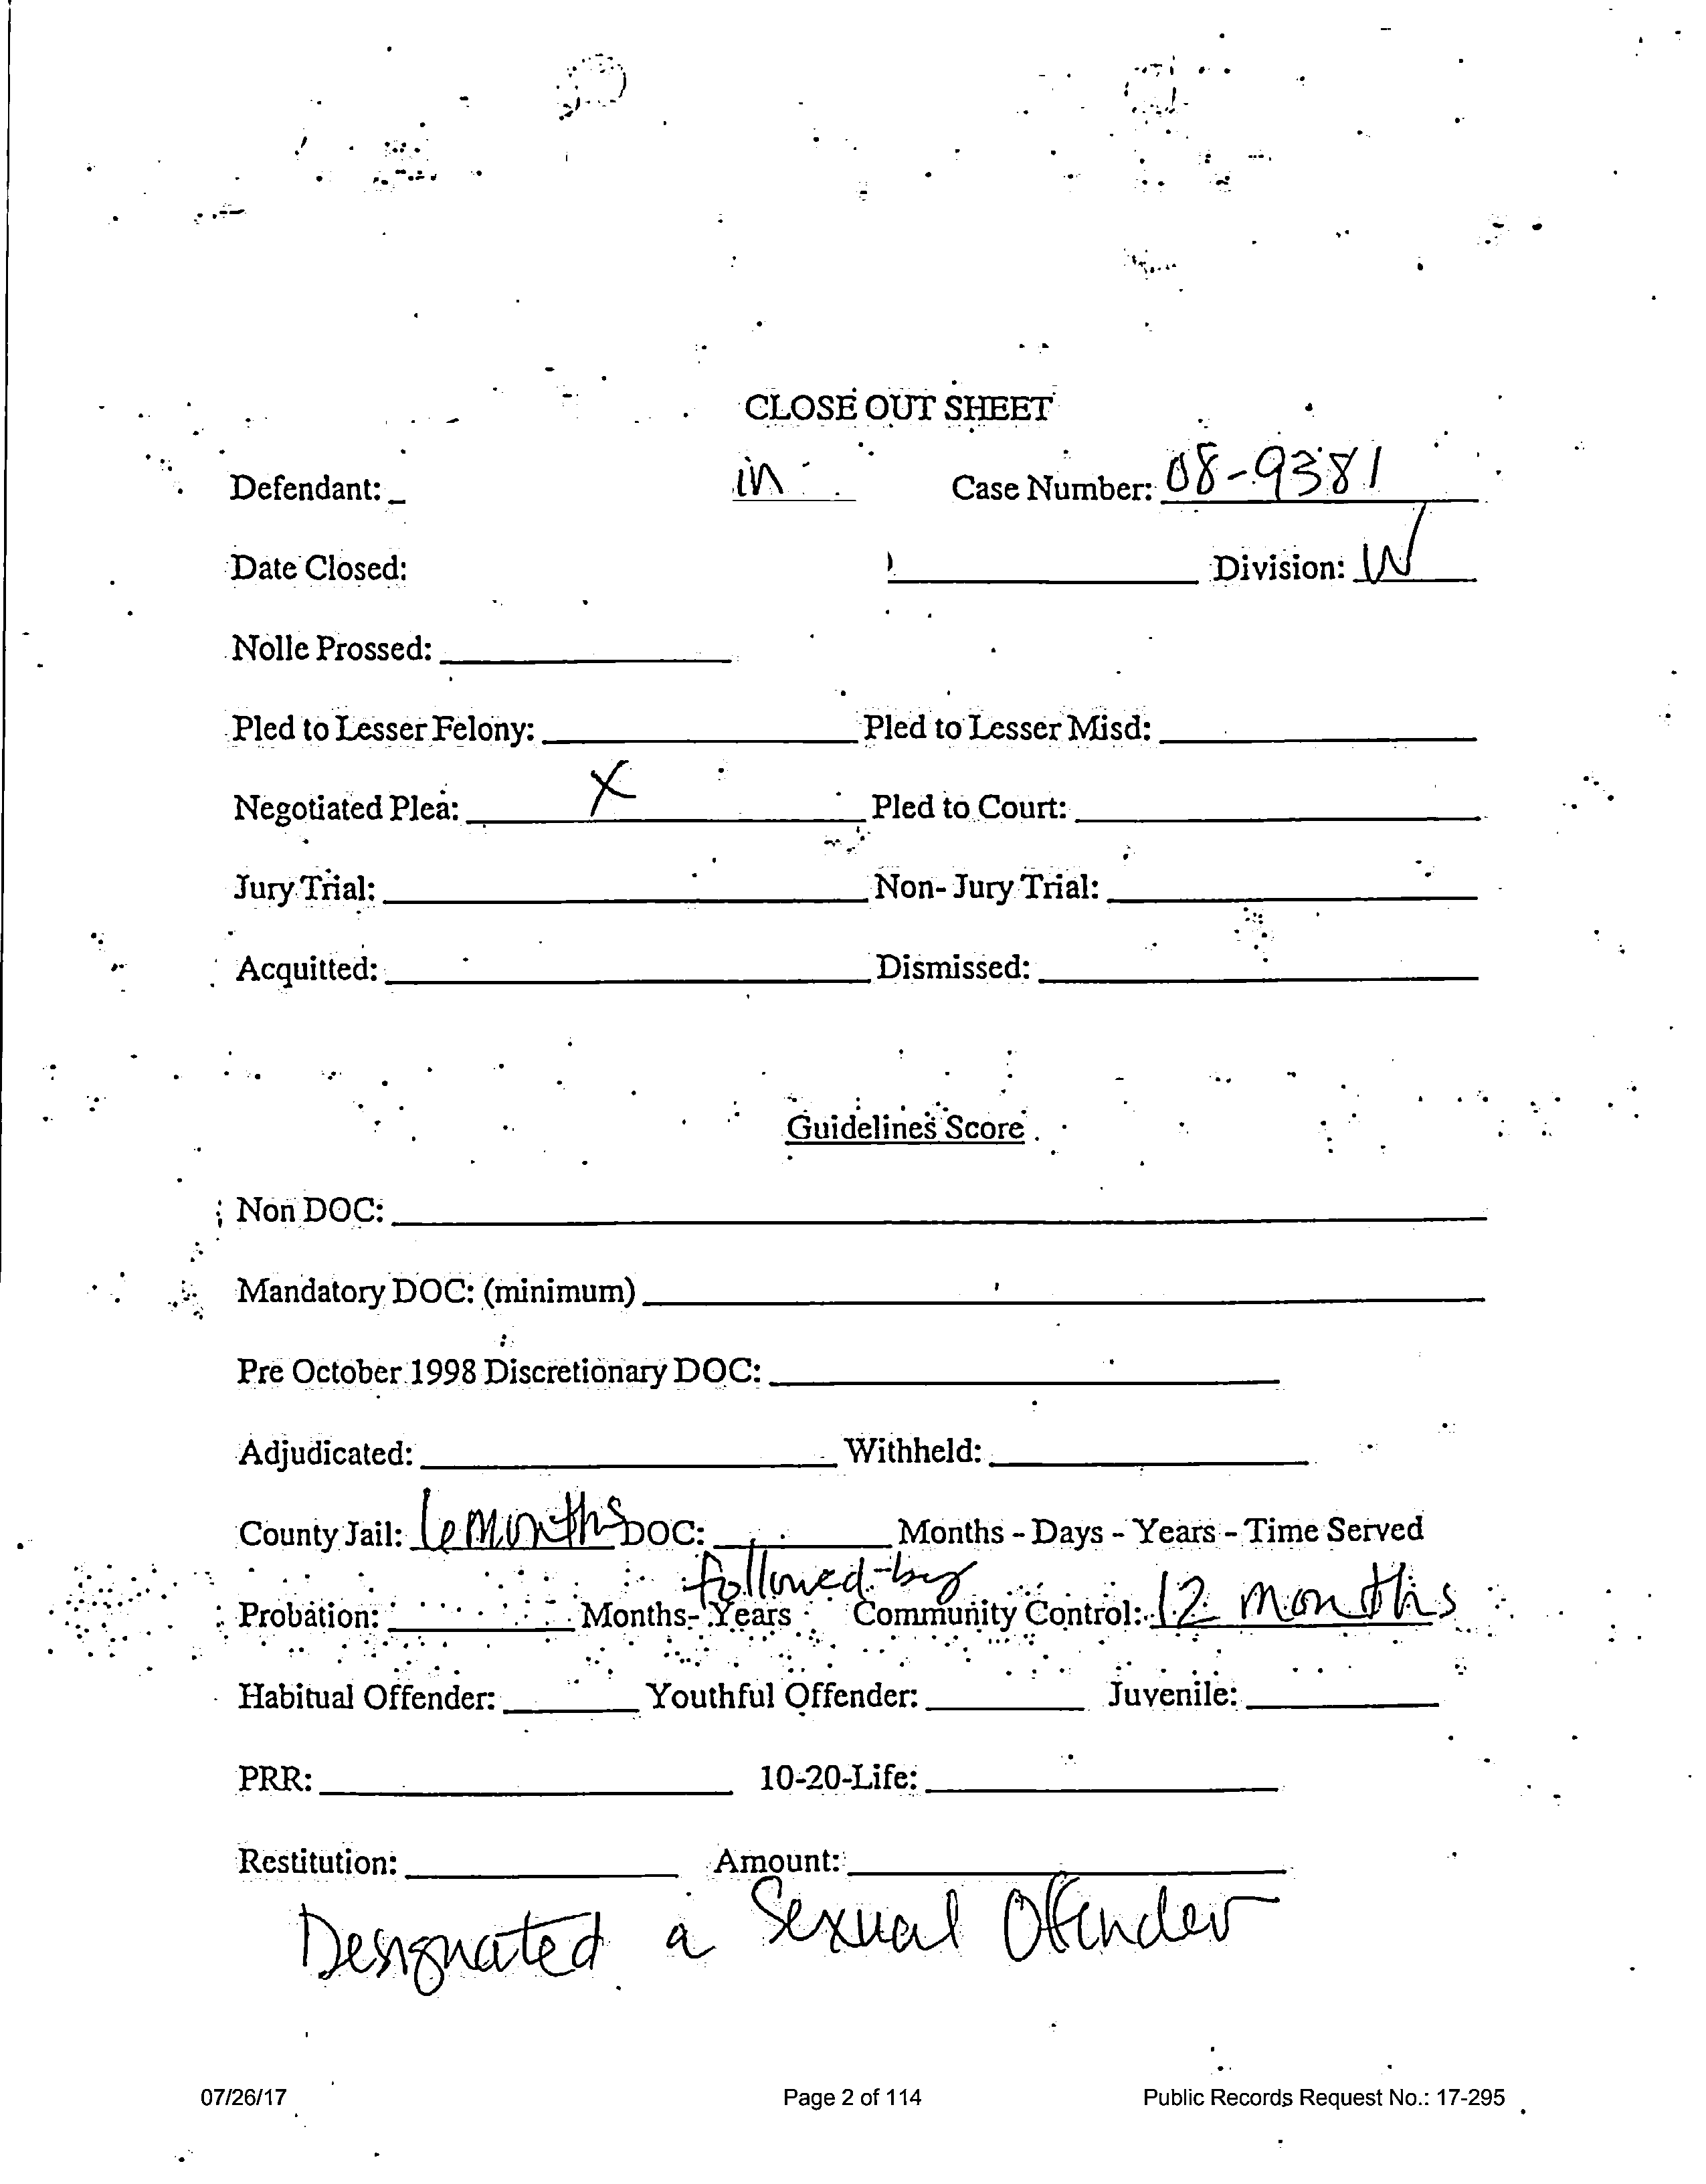 CLOSE OUT SHEET
Defendant: _ in Case Number: 08-9381
Date Closed: Division: W
Nolle Prossed:
Pled to Lesser Felony: Pled to Lesser Misd:
Negotiated Plea: X Pled to Court:
Jury Trial: Non- Jury Trial:
Acquitted: Dismissed:
Guidelines Score
Non DOC:
Mandatory DOC: (minimum)
Pre October 1998 Discretionary DOC:
Adjudicated: Withheld:
County Jail: 6 months DOC: Months - Days - Years - Time Served
followed by
Probation: Months- Years Community Control: 12 months
Habitual Offender: Youthful Offender: Juvenile:
PRR: 10-20-Life:
Restitution: Amount:
Designated a Sexual Offender
07/26/17 Page 2 of 114 Public Records Request No.: 17-295